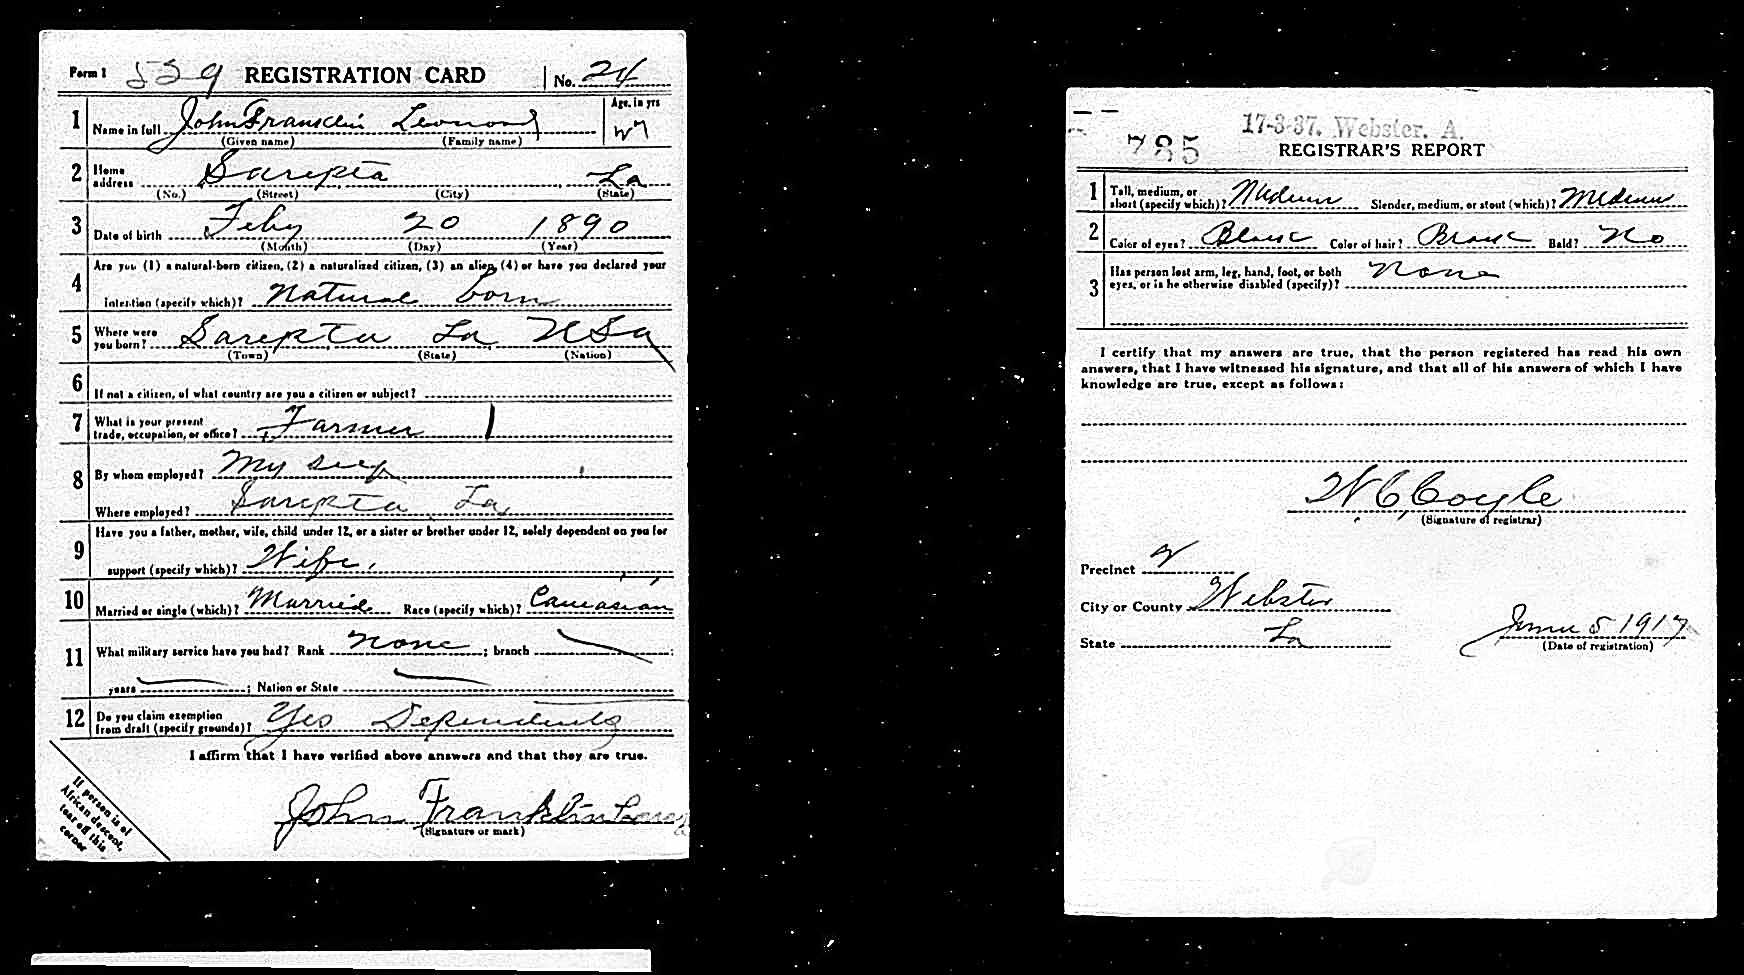 Form 1 529 REGISTRATION CARD No. 24
1 Name in full John Franklin Leonard Age, in yrs 27
(Given name) (Family name)
2 Home address Sarepta La
(No.) (Street) (City) (State)
3 Date of birth Feby 20 1890
(Month) (Day) (Year)
4 Are you (1) a natural-born citizen, (2) a naturalized citizen, (3) an alien, (4) or have you declared your
intention (specify which)? Natural born
5 Where were you born? Sarepta La USa
(Town) (State) (Nation)
6 If not a citizen, of what country are you a citizen or subject?
7 What is your present trade, occupation, or office? Farmer
8 By whom employed? My self
Where employed? Sarepta La
9 Have you a father, mother, wife, child under 12, or a sister or brother under 12, solely dependent on you for
support (specify which)? Wife
10 Married or single (which)? Married Race (specify which)? Caucasian
11 What military service have you had? Rank None ; branch ;
years ; Nation or State
12 Do you claim exemption from draft (specify grounds)? Yes Dependents
I affirm that I have verified above answers and that they are true.
John Franklin
(Signature or mark)
If person is of
African descent,
tear off this
corner
785 17-3-37. Webster. A.
REGISTRAR'S REPORT
1 Tall, medium, or short (specify which)? Medium Slender, medium, or stout (which)? Medium
2 Color of eyes? Color of hair? Bald? No
3 Has person lost arm, leg, hand, foot, or both
eyes, or is he otherwise disabled (specify)? None
I certify that my answers are true, that the person registered has read his own
answers, that I have witnessed his signature, and that all of his answers of which I have
knowledge are true, except as follows:
W. C. Coyle
(Signature of registrar)
Precinct 2
City or County Webster
State La June 5 1917
(Date of registration)